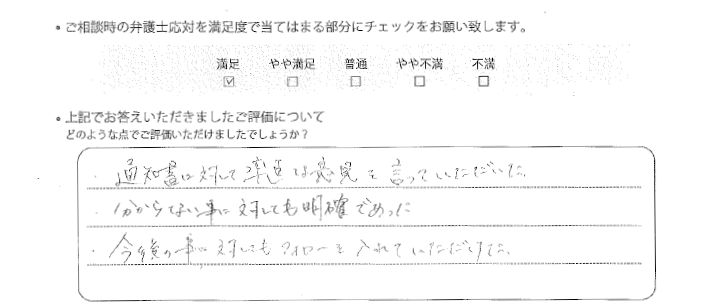 ・ご相談時の弁護士応対を満足度で当てはまる部分にチェックをお願い致します。
満足 やや満足 普通 やや不満 不満
☑ □ □ □ □
・上記でお答えいただきましたご評価について
どのような点でご評価いただけましたでしょうか？
・通知書に対して率直な意見を言っていただいた。
・分からない事に対しても明確であった
・今後の事に対してもフォローを入れていただけた。